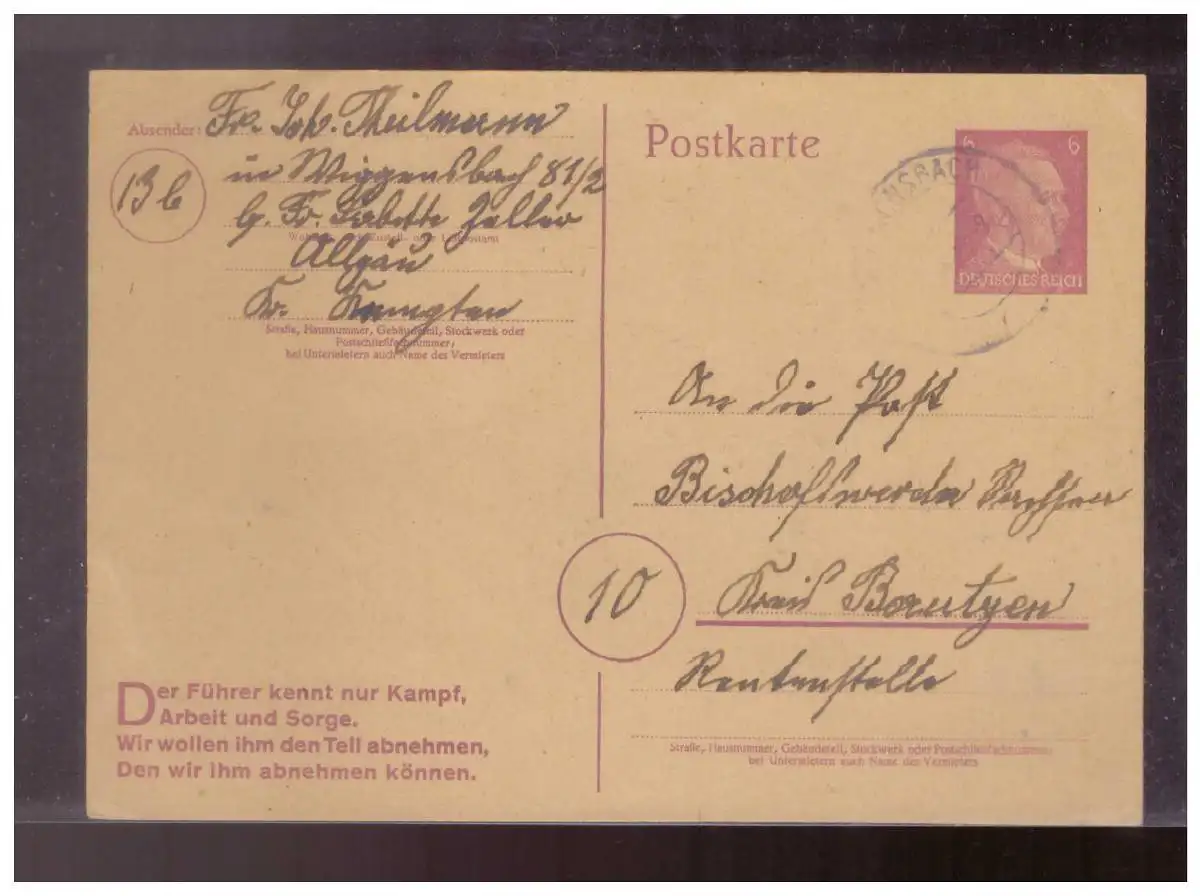 Absender: Fr. Joh. Theilmann
13b
in Wiggensbach 81 1/2
b. Fr. Babette Zeller
Wohnort, auch Zustell- oder Leitpostamt
Allgäu
Kr. Kempten
Straße, Hausnummer, Gebäudeteil, Stockwerk oder
Postschließfachnummer,
bei Untermietern auch Name des Vermieters
Der Führer kennt nur Kampf,
Arbeit und Sorge.
Wir wollen ihm den Teil abnehmen,
Den wir ihm abnehmen können.
Postkarte
6 6
DEUTSCHES REICH
NSBACH
An die Post
Bischofswerda Sachsen
10
Kreis Bautzen
Rentenstelle
Straße, Hausnummer, Gebäudeteil, Stockwerk oder Postschließfachnummer;
bei Untermietern auch Name des Vermieters